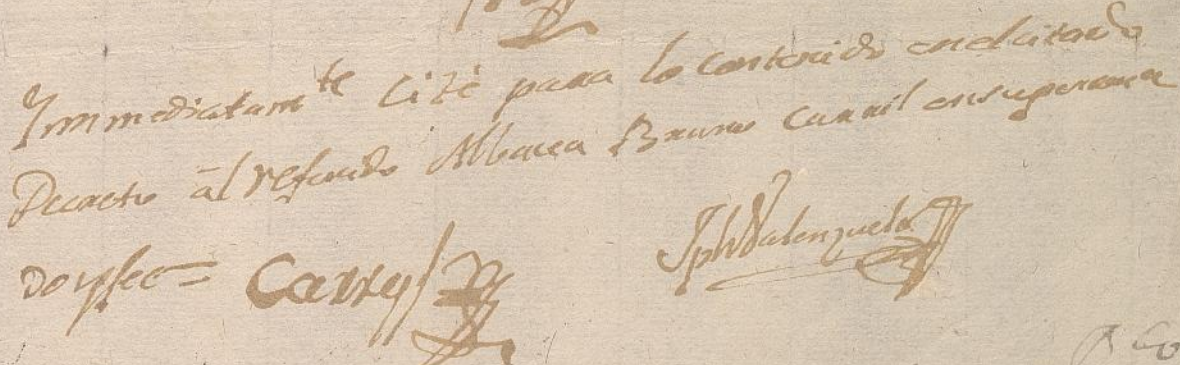 Immediatam.te Cité para lo contenido enelcitado
Decreto âl referido Albacea Bruno Carril ensupersona
doy fee =
Jph Valenzuela